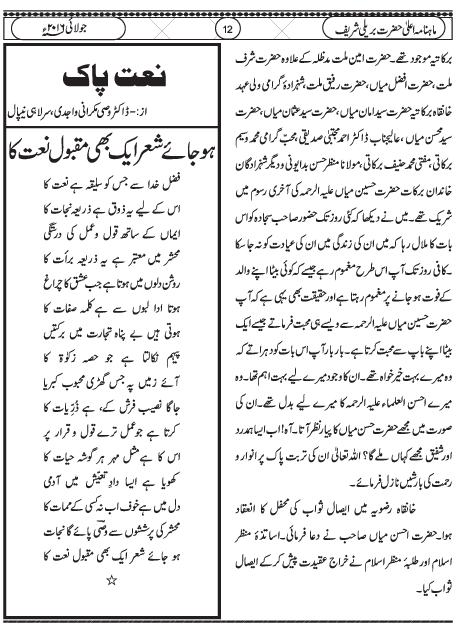 ماہنامہ اعلیٰ حضرت بریلی شریف
12
جولائی ۲۰۱۶ء
برکاتیہ موجود تھے۔ حضرت امین ملت مدظلہ کے علاوہ حضرت شرف
ملت، حضرت افضل میاں، حضرت رفیق ملت، شہزادۂ گرامی ولی عہد
خانقاہ برکاتیہ حضرت سید امان میاں، حضرت سید عثمان میاں، حضرت
سید محسن میاں، عالیجناب ڈاکٹر احمد مجتبیٰ صدیقی، محبّ گرامی محمد وسیم
برکاتی، مفتی محمد حنیف برکاتی، مولانا منظر حسن بدایونی و دیگر شہزادگان
خاندان برکات حضرت حسین میاں علیہ الرحمہ کی آخری رسوم میں
شریک تھے۔ میں نے دیکھا کہ کئی روز تک حضور صاحب سجادہ کو اس
بات کا ملال رہا کہ میں ان کی زندگی میں ان کی عیادت کو نہ جا سکا
۔ کافی روز تک آپ اس طرح مغموم رہے جیسے کہ کوئی بیٹا اپنے والد
کے فوت ہو جانے پر مغموم رہتا ہے اور حقیقت بھی یہی ہے کہ آپ
حضرت حسین میاں علیہ الرحمہ سے ویسے ہی محبت فرماتے جیسے ایک
بیٹا اپنے باپ سے محبت کرتا ہے۔ بار بار آپ اس بات کو دہراتے کہ
وہ میرے بہت خیر خواہ تھے۔ ان کا وجود میرے لیے بہت اہم تھا۔ وہ
میرے احسن العلماء علیہ الرحمہ کا میرے لیے بدل تھے۔ ان کی
صورت میں مجھے حضرت حسن میاں کا پیار نظر آتا۔ آہ! اب ایسا ہمدرد
اور شفیق مجھے کہاں ملے گا؟ اللہ تعالیٰ ان کی تربت پاک پر انوار و
رحمت کی بارشیں نازل فرمائے۔
خانقاہ رضویہ میں ایصال ثواب کی محفل کا انعقاد
ہوا۔ حضرت احسن میاں صاحب نے دعا فرمائی۔ اساتذۂ منظر
اسلام اور طلبۂ منظر اسلام نے خراج عقیدت پیش کر کے ایصال
ثواب کیا۔
نعت پاک
از:- ڈاکٹر وصی مکرانی واجدی، سرلاہی نیپال
ہو جائے شعر ایک بھی مقبول نعت کا
فضل خدا سے جس کو سلیقہ ہے نعت کا
اس کے لیے یہ ذوق ہے ذریعہ نجات کا
ایماں کے ساتھ قول و عمل کی درستگی
محشر میں معتبر ہے یہ ذریعہ برأت کا
روشن دلوں میں ہوتا ہے جب عشق کا چراغ
ہوتا ادا لبوں سے ہے کلمہ صفات کا
ہوتی ہیں بے پناہ تجارت میں برکتیں
پیہم نکالتا ہے جو حصہ زکوٰۃ کا
آئے زمیں پہ جس گھڑی محبوب کبریا
جاگا نصیب فرش کے، ہے ذرّیات کا
کرتا ہے جو عمل ترے قول و قرار پر
اس کا ہے مثل مہر ہر گوشہ حیات کا
کھویا ہے ایسا دادِ تعیش میں آدمی
دل میں ہے خوف اب نہ کسی کے ممات کا
محشر کی پرسشوں سے وصیؔ پائے گا نجات
ہو جائے شعر ایک بھی مقبول نعت کا
☆